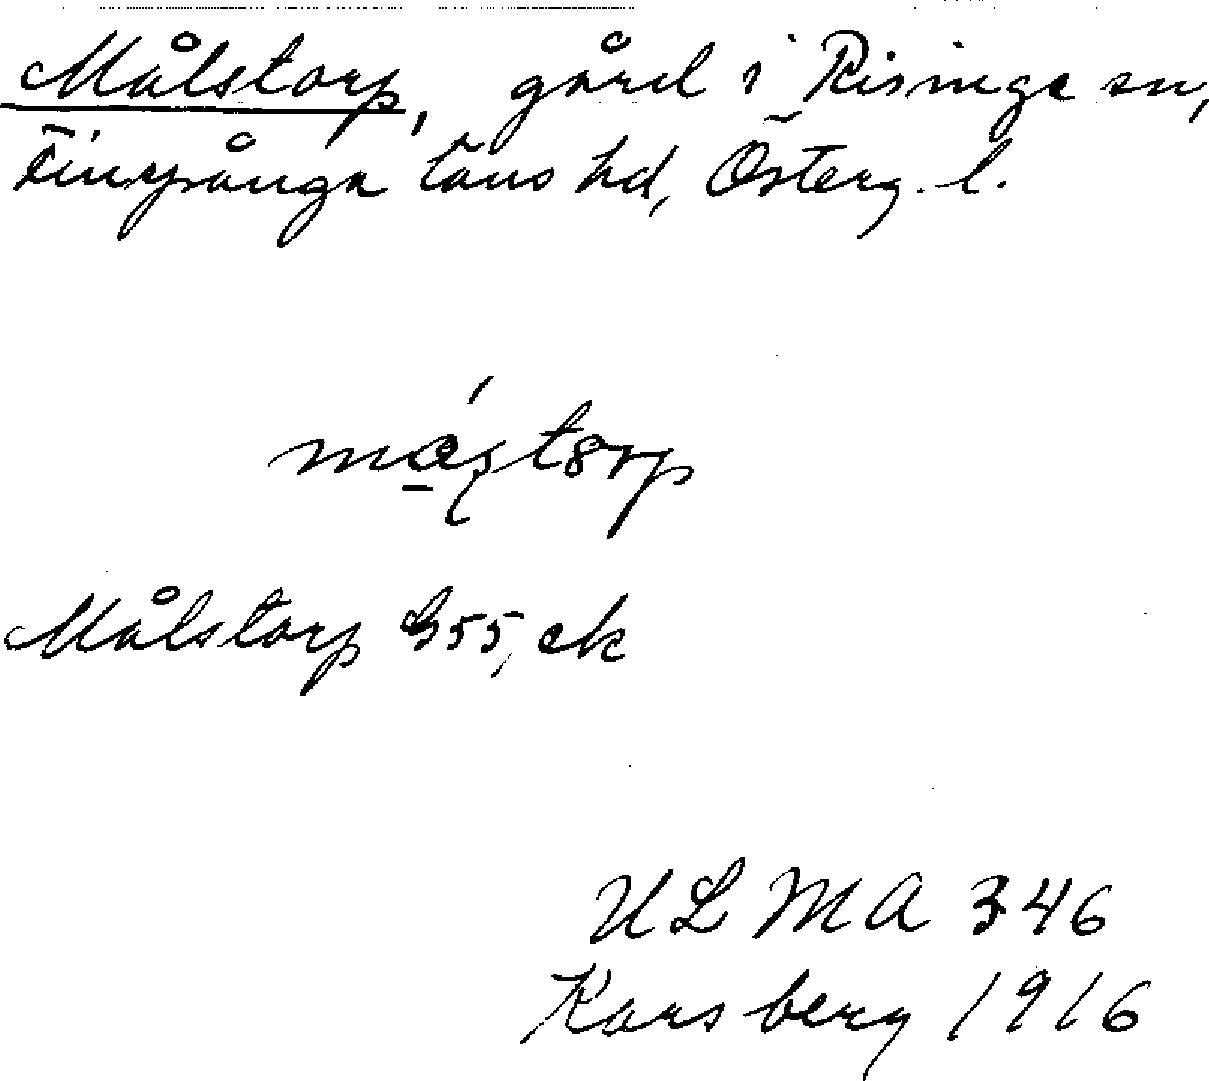 Målstorp, gård i Risinge sn,
Finspånga läns hd, Österg. l.
Målstorp G55, ek
ULMA 346
Karsberg 1916